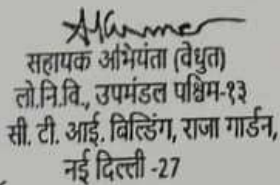 सहायक अभियंता (वैधुत)
लो.नि.वि., उपमंडल पश्चिम-१३
सी. टी. आई. विल्डिंग, राजा गार्डन,
नई दिल्ली -27